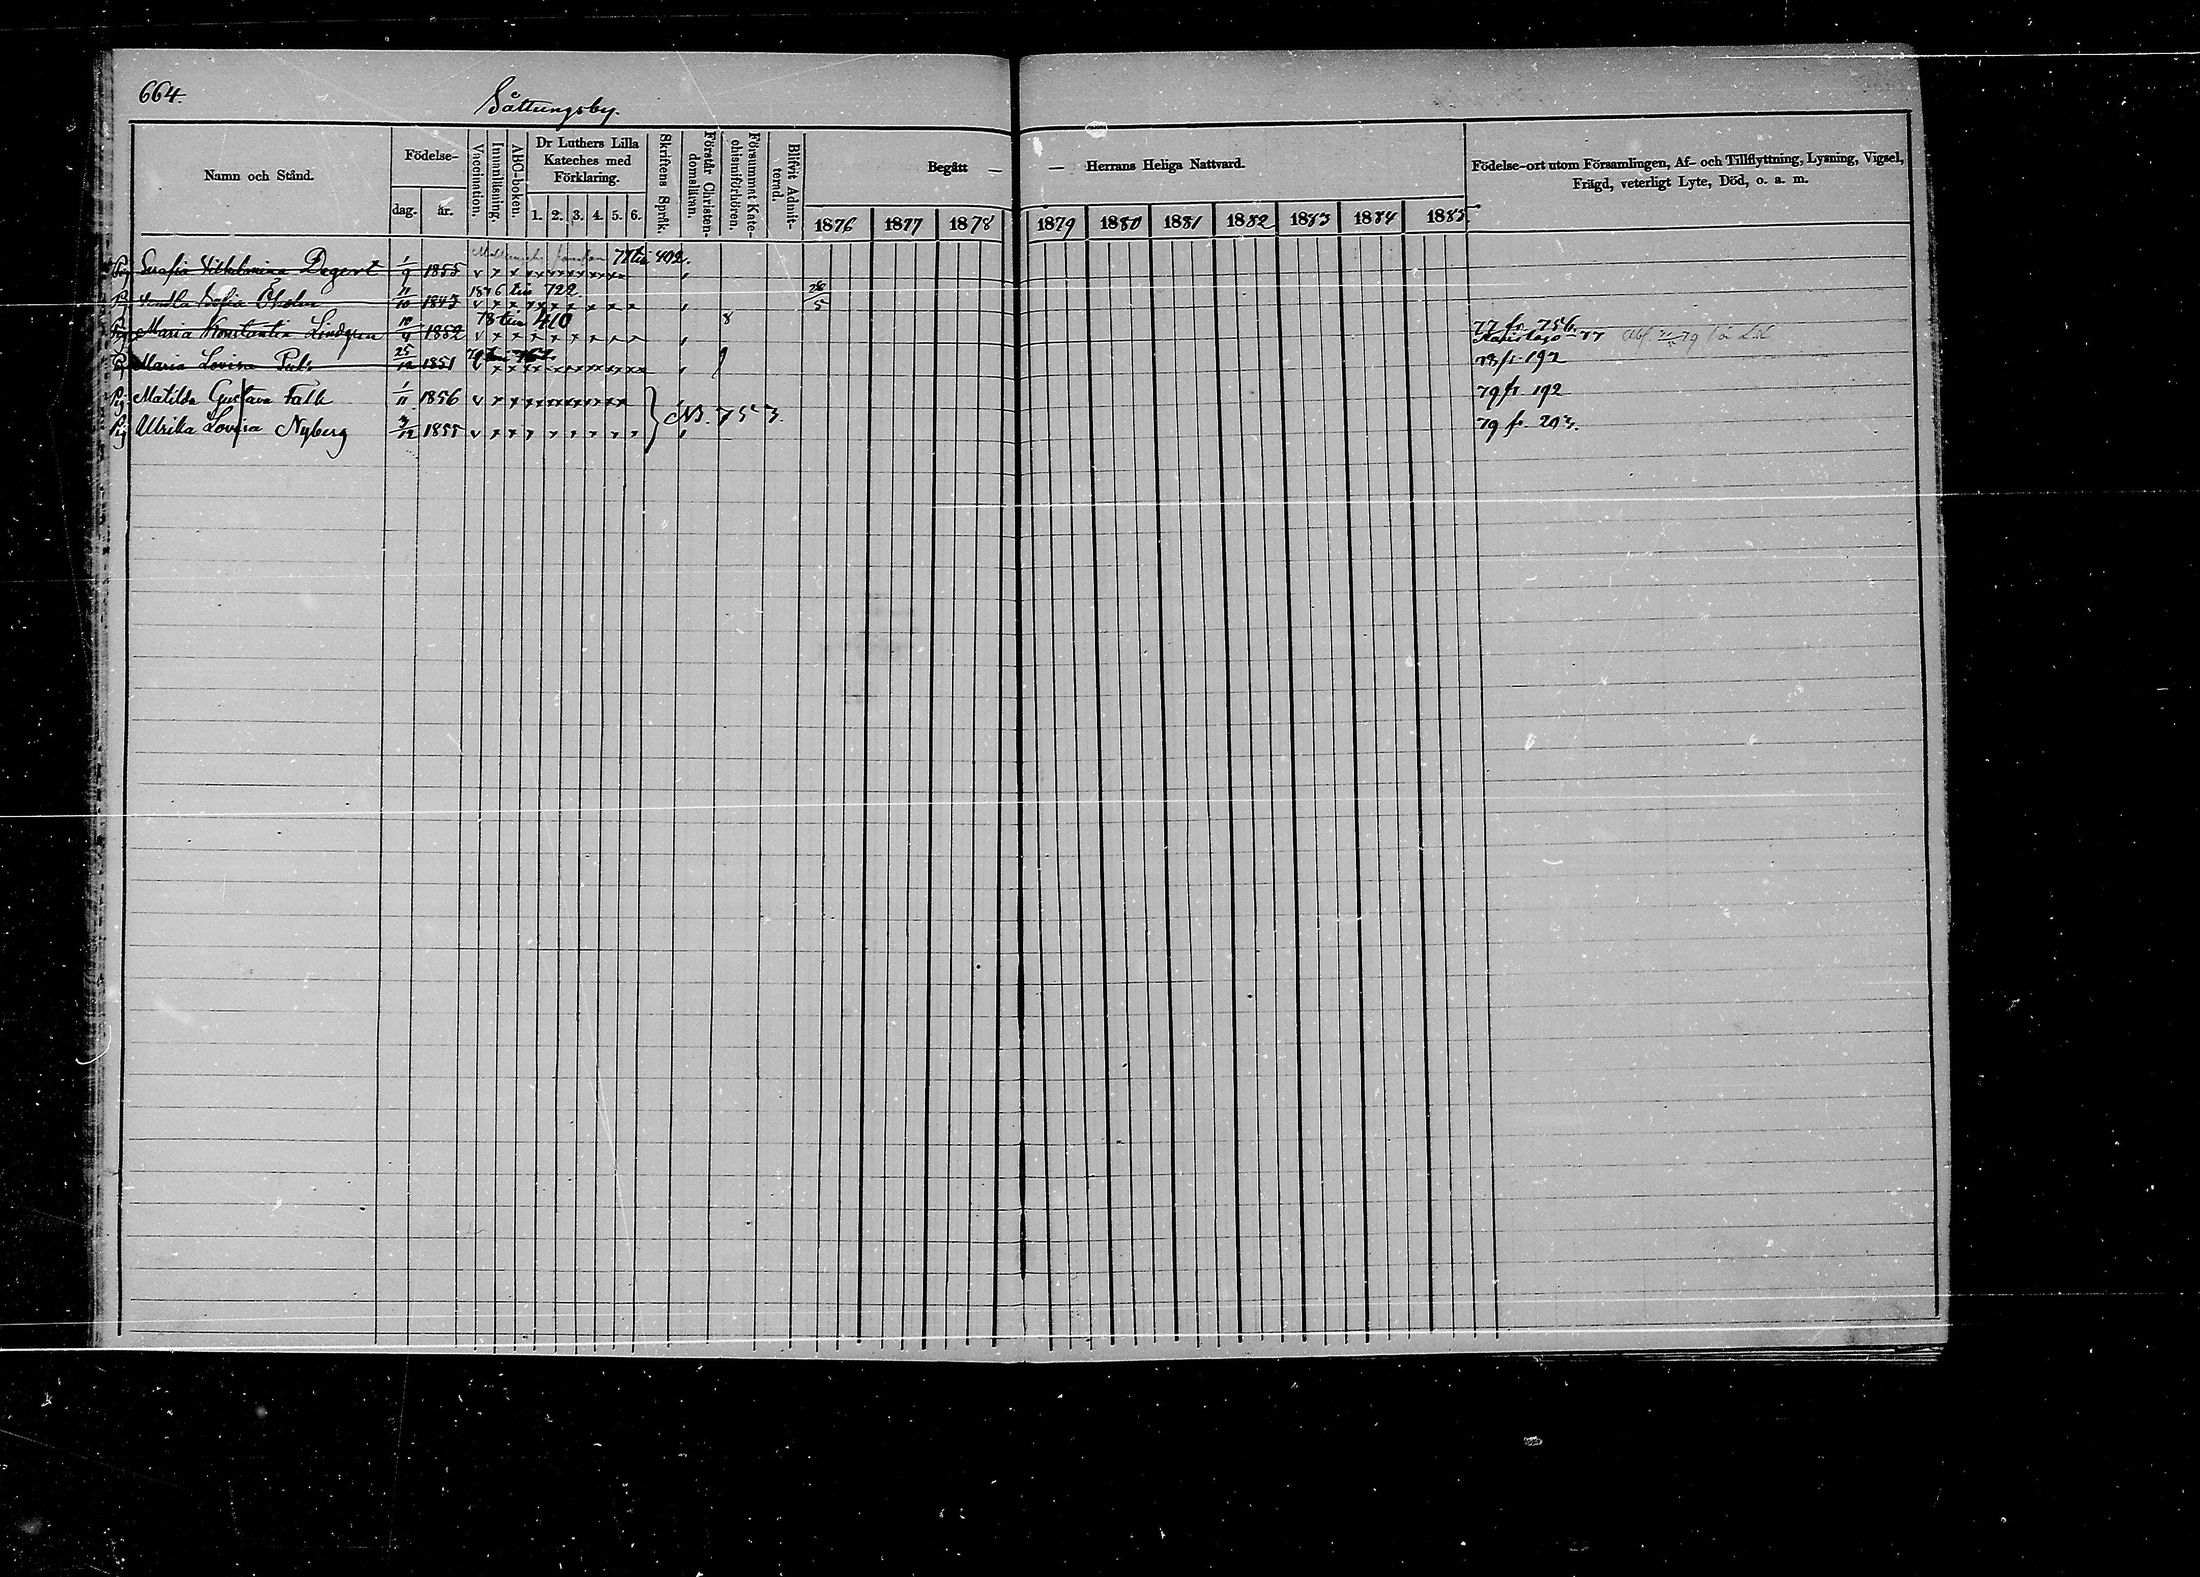 664.
Såttungsby.
Namn och Stånd.
Födelse-
dag.
år.
Vaccination.
Innanläsning.
ABC-boken.
Dr Luthers Lilla
Kateches med
Förklaring.
1. 2. 3. 4. 5. 6.
Skriftens Språk.
Förstår Christen-
domsläran.
Försummat Kate-
chismiförhören.
Blifvit Admit-
terad.
Begått —
— Herrans Heliga Nattvard.
1876 1877 1878 1879 1880 1881 1882 1883 1884 1885
Födelse-ort utom Församlingen, Af- och Tillflyttning, Lysning, Vigsel,
Frägd, veterligt Lyte, Död, o. a. m.
Pig Serafia Vilhelmina Degert 1/9 1855 v x x x x x x x x x x 78 till 402.
Pig Sofia Öholm 11/10 1843 v x x x x x x x x 1876 till 722. 28/5
Pig Maria Konstantia Lindgren 10/4 1852 v x x x x x x x x 78 till 410 8 77 fr. 756. 77
Pig Maria Lovisa 25/12 1851 v x x x x x x x x x x 9 78 fr. 192
Pig Matilda Gustava Falk 1/11 1856 v x x x x x x x x x x 79 fr. 192
Pig Ulrika Lovisa Nyberg 3/12 1855 v x x x x x x x x N. 753. 79 fr. 203.